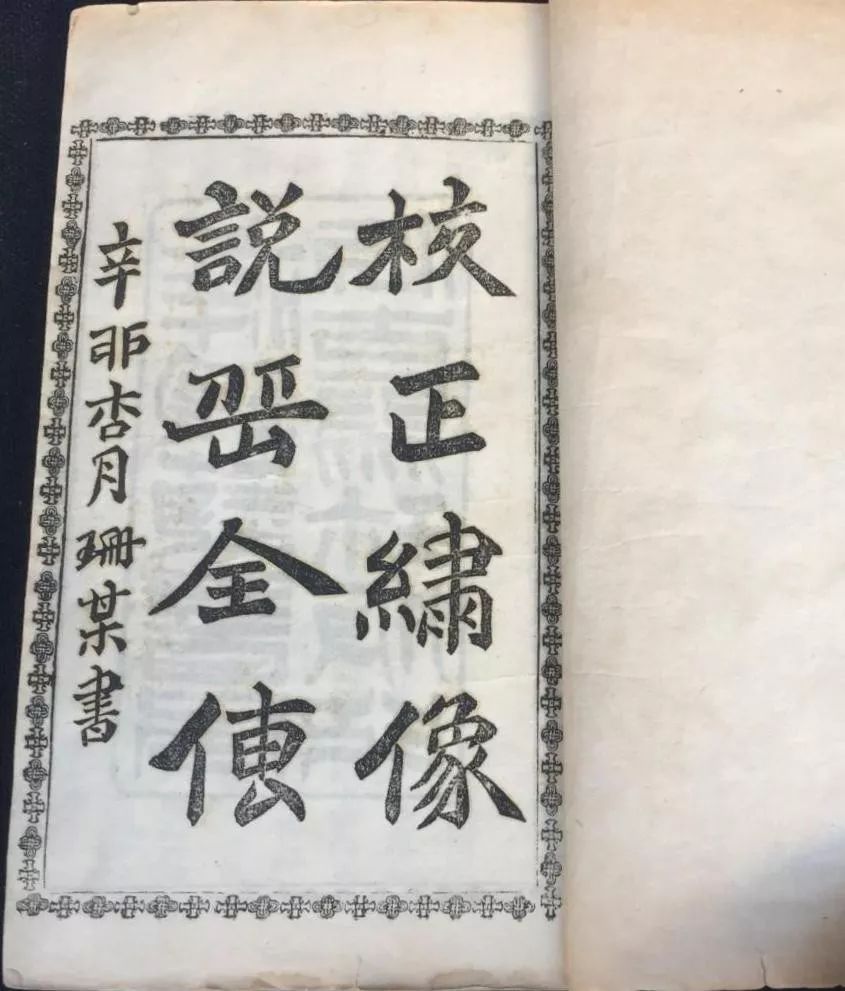 校正繡像
說岳全傳
辛卯杏月珊某書